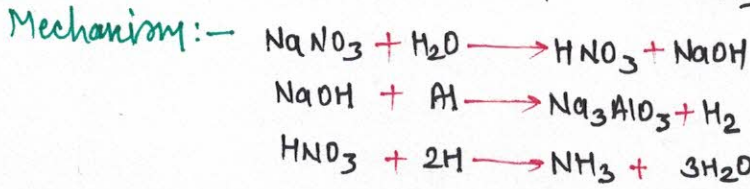 Mechanism:- NaNO₃ + H₂O → HNO₃ + NaOH
NaOH + Al → Na₃AlO₃ + H₂
HNO₃ + 2H → NH₃ + 3H₂O